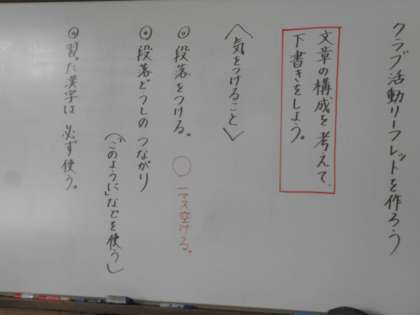 クラブ活動リーフレットを作ろう
文章の構成を考えて、
下書きをしよう。
〈気をつけること〉
◎段落をつける。○一マス空ける。
◎段落どうしのつながり
(「このように」などを使う)
◎習った漢字は必ず使う。